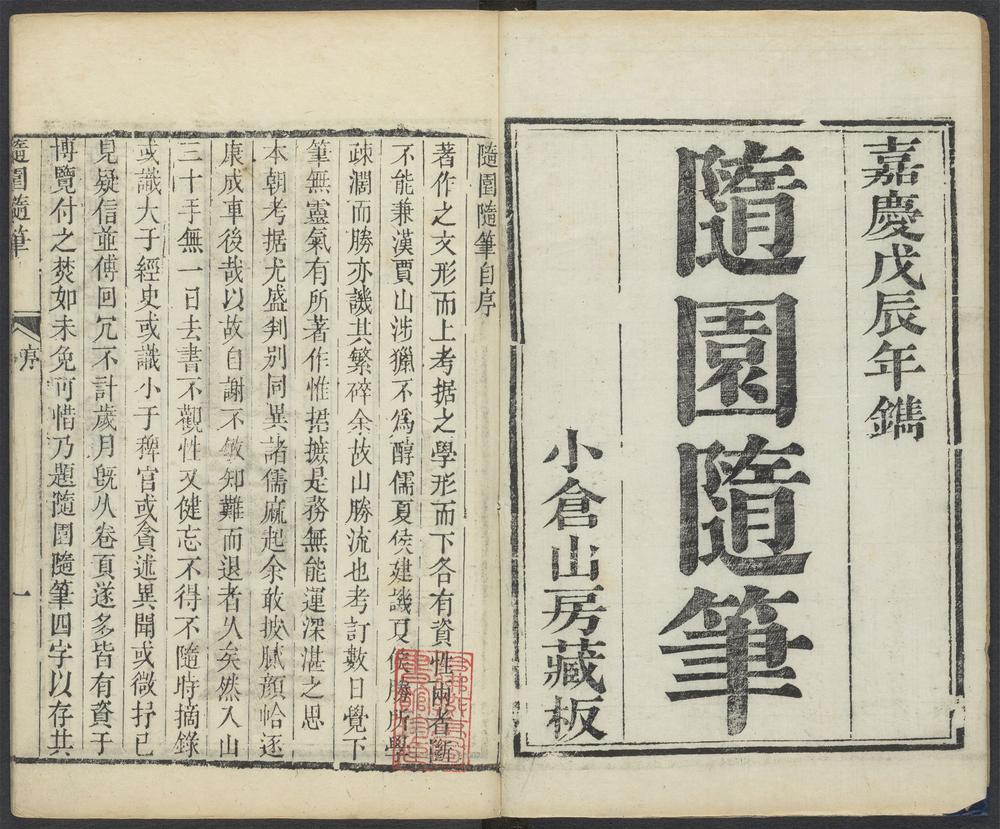 嘉慶戊辰年鐫
隨園隨筆
小倉山房藏板
隨園隨筆自序
著作之文形而上考据之學形而下各有資性兩者斷
不能兼漢賈山涉獵不爲醇儒夏侯建譏夏侯勝所學
疎濶而勝亦譏其繁碎余故山勝流也考訂數日覺下
筆無靈氣有所著作惟捃摭是務無能運深湛之思
本朝考据尤盛判别同異諸儒麻起余敢披膩顔帢逐
康成車後哉以故自謝不敏知難而退者久矣然入山
三十年無一日去書不觀性又健忘不得不隨時摘錄
或識大于經史或識小于稗官或貪述異聞或微抒已
見疑信並傳回冗不計歲月旣久卷頁遂多皆有資于
博覽付之焚如未免可惜乃題隨園隨筆四字以存其
隨園隨筆
序
一